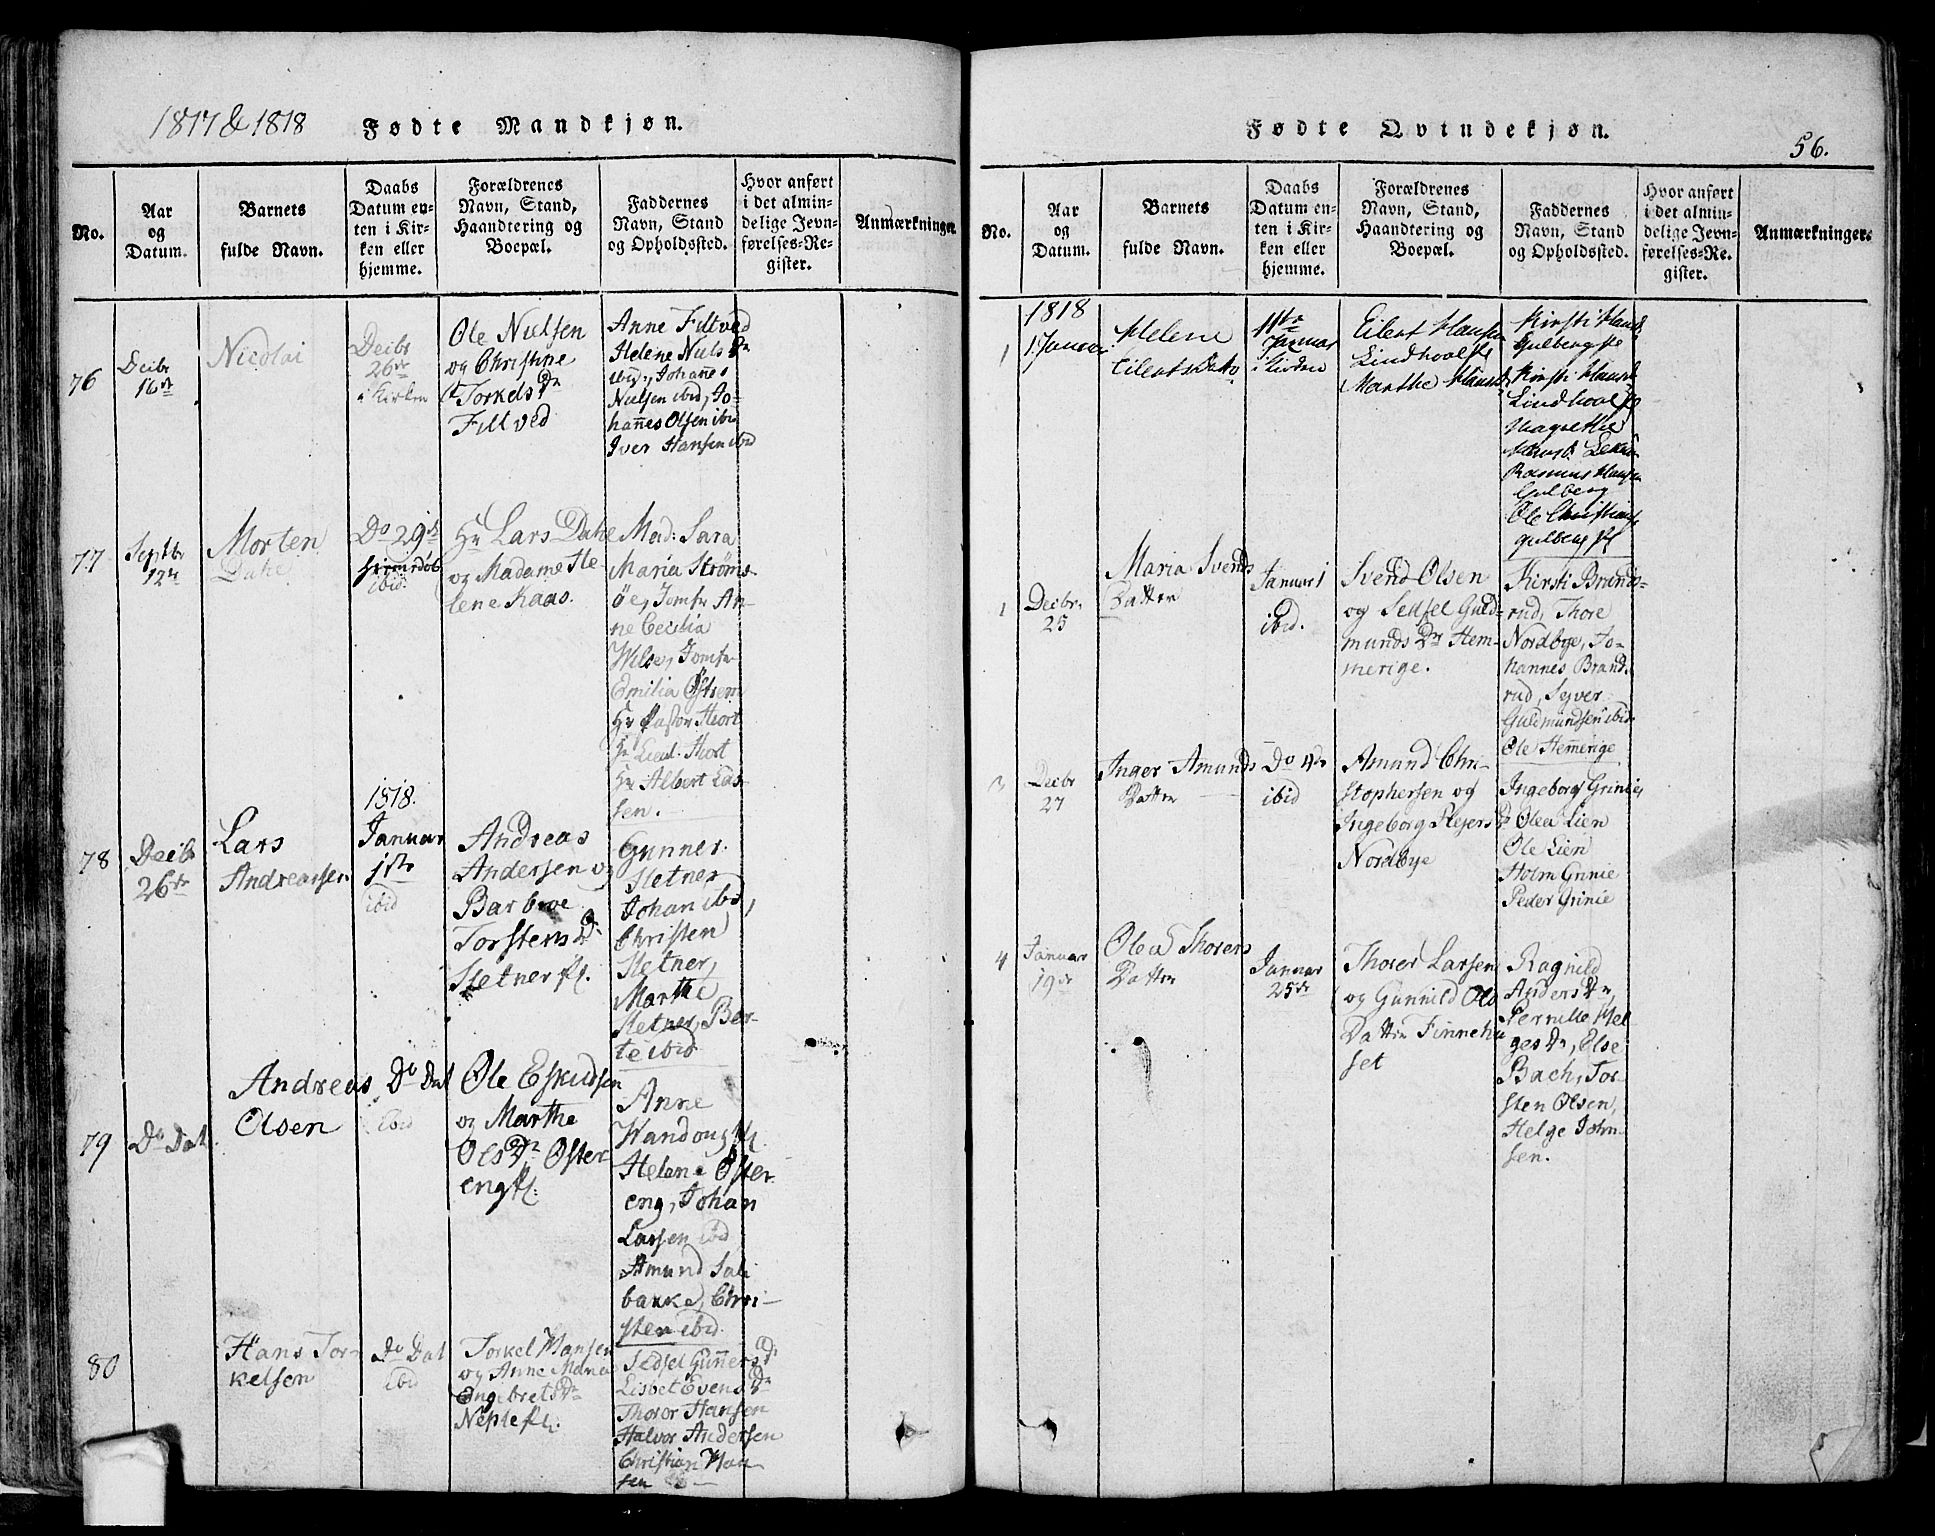 1817 & 1818
Fødte Mandkjøn.
No.
Aar
og
Datum.
Barnets
fulde Navn.
Daabs
Datum en-
ten i Kir-
ken eller
hjemme.
Forældrenes
Navn, Stand,
Haandtering og
Boepæl.
Faddernes
Navn, Stand
og Opholdssted.
Hvor anført
i det almin-
delige Jevn-
førelses-Re-
gister.
Anmærkninger.
76
Decbr
16de
Nicolai
Decbr
26de
i Kirken
Ole Nielsen
og Christine
Torkels Dr
Filtved
Anne Filtved
Helene Niels Dr
ibid, Johanes
Nielsen ibid, Jo-
hannes Olsen ibid
Iver Hansen ibid
77
Septbr
12te
Morten
Dake
Do 29de
ibid.
Hr Lars Dake
og Madame He-
lene Kaas.
Mad: Sara
Maria Strøms-
øe, Jomfr An-
ne Cecilia
Wilse, Jomfr
Emilia
Hr Pastor Hiort
Hr Lieut.
Hr Albert Las-
sen.
78
Decbr
26de
Lars
Andreassen
1818.
Januar
1ste
ibid
Andreas
Andersen og
Barbroe
Torstens Dr
Stetner
Gunner
Stetner
Johan ibid,
Christen
Stetner,
Marthe
Stetner, Ber-
te ibid
79
Do Dat.
Andreas
Olsen
Do Dat
ibid
Ole Eskildsen
og Marthe
Ols Dr Øster
eng
Anne
Helene Øster
eng, Johan
Larsen ibid
Amund Sole
bakke, Chri-
sten ibid
80
Hans Tor-
kelsen
Do Dat
ibid
Torkel Hansen
og Anne Maria
Engebrets Dr
Sidsel Gunners Dr
Lisbet Evens Dr
Thoror Hansen
Halvor Andersen
Christian Han-
sen
Fødte Qvindekjøn.
56.
No.
Aar
og
Datum.
Barnets
fulde Navn.
Daabs
Datum en-
ten i Kir-
ken eller
hjemme.
Forældrenes
Navn, Stand,
Haandtering og
Boepæl.
Faddernes
Navn, Stand
og Opholdssted.
Hvor anført
i det almin-
delige Jevn-
førelses-Re-
gister.
Anmærkninger.
1
1818
1 Januar
Helene
Eilerts
Januar
i Kirken
Eilert Hansen
Marthe
Kirsti
Kirsti
Magrethe
Rasmus Hansen
Gulberg
Ole
1
Decbr.
25
Maria Svends
Datter
Januar 1
ibid.
Svend Olsen
og Sidsel Guld-
munds Dr Hem-
merige.
Kirsti Brands-
rud, Thore
Nordbye, Jo-
hannes Brands
rud, Syver
Guldmundsen ibid
Ole Hemerige
3
Decbr
27
Inger Amunds
Datter
ibid
Amund Chri-
stophersen og
Ingeborg Reiers Dr
Nordbye
Ingeborg Grinie,
Olea Lien
Ole Lien
Holm Grinie
Peder Grinie
4
Januar
19de
Olea Thorers
Datter
Januar
25de
Thorer Larsen
og Gunnild Ols
Datter Finnehu
set
Ragnild
Anders Dr,
Pernille Hel
ges Dr, Else
Bach, Tor-
sten Olsen,
Helge John-
sen.